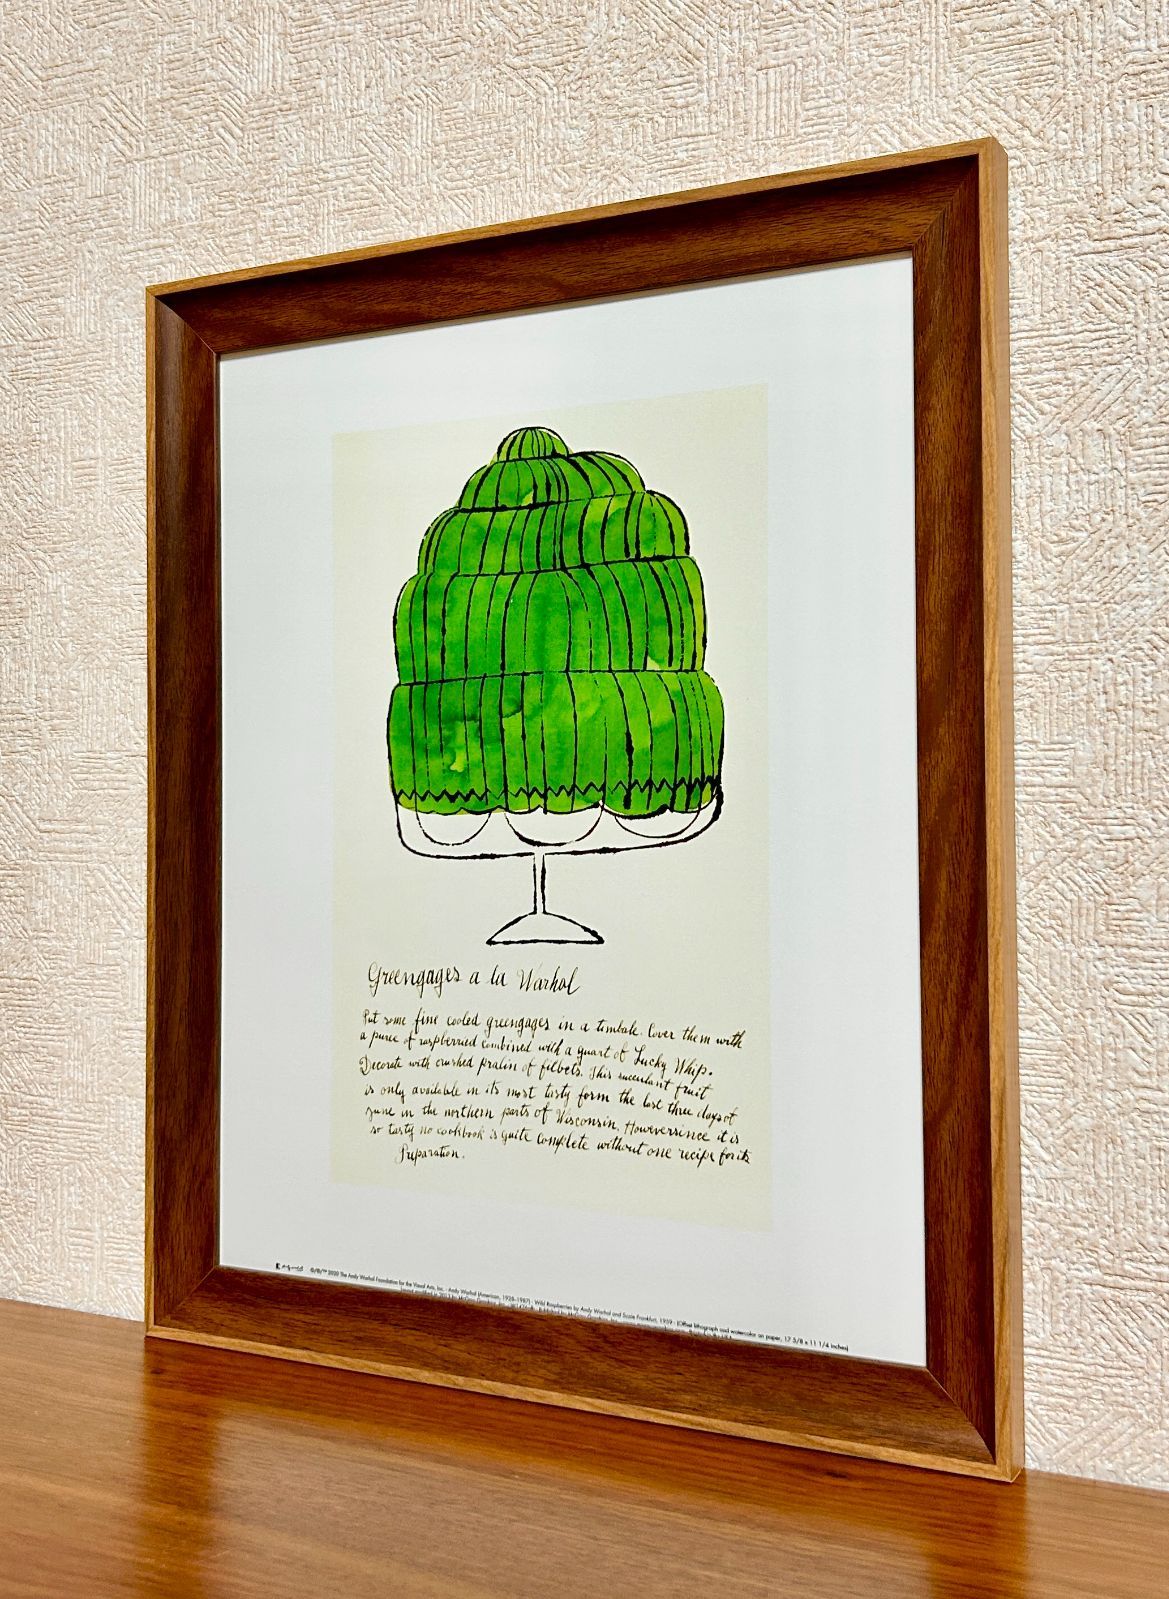 Greengages a la Warhol
Put some fine cooled greengages in a timbale. Cover them with
a puree of raspberried combined with a quart of Lucky Whip.
Decorate with crushed pralin of filbets. This succulant fruit
is only available in its most tasty form the last three days of
June in the northern parts of Wisconsin. Howeversince it is
so tasty no cookbook is quite complete without one recipe for its
Preparation.
©/®/™ 2020 The Andy Warhol Foundation for the Visual Arts, Inc. - Andy Warhol (American, 1928-1987) - Wild Raspberries by Andy Warhol and Suzie Frankfurt, 1959 - (Offset lithograph and watercolor on paper, 17 5/8 x 11 1/4 inches)